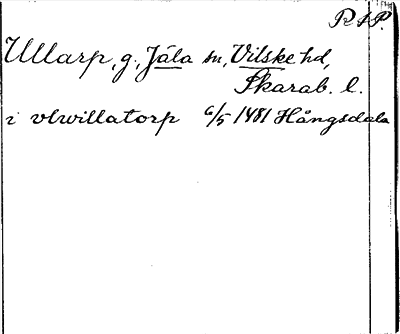 RAP.
Ullarp, g., Jäla sn, Vilske hd,
Skarab. l.
i vlwillatorp 6/5 1481 Hångsdala